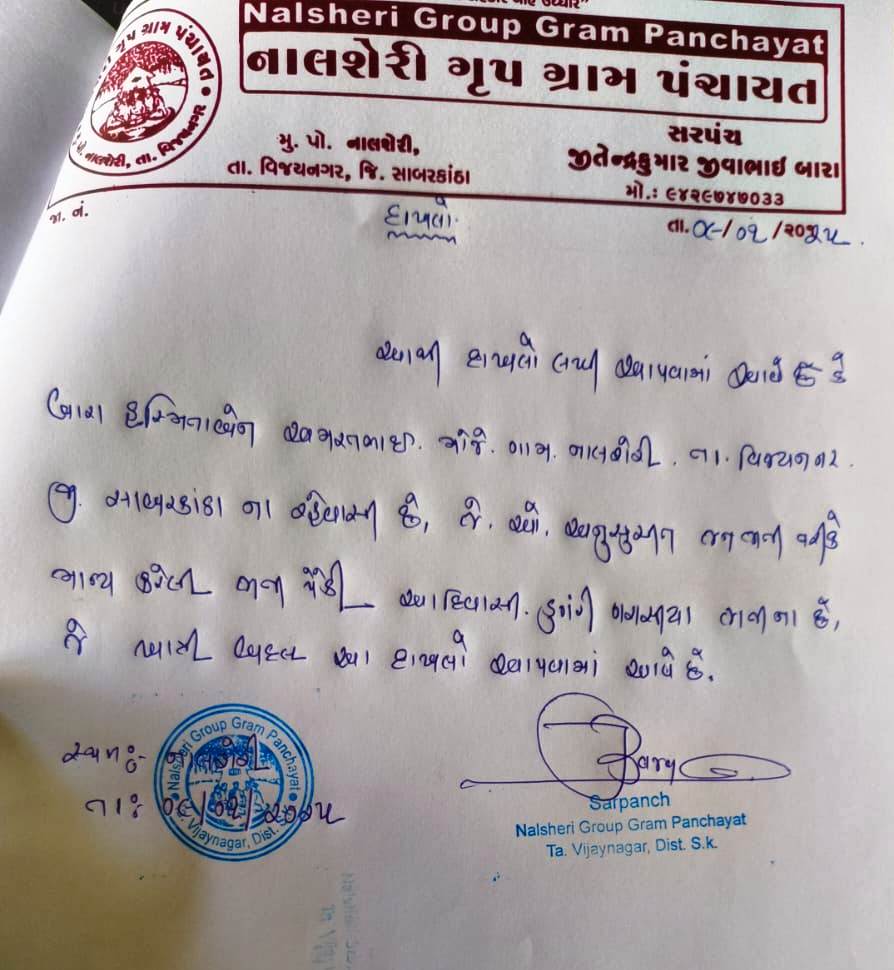 Nalsheri Group Gram Panchayat
નાલશેરી ગૃપ ગ્રામ પંચાયત
મુ. પો. નાલશેરી,
તા. વિજયનગર, જિ. સાબરકાંઠા
સરપંચ
જીતેન્દ્રકુમાર જીવાભાઈ બારા
મો.: ૯૪૨૯૭૪૭૦૩૩
જા. નં.
દાખલો
તા. ૦૯/૦૧/૨૦૨૫
આથી દાખલો લખી આપવામાં આવે છે કે
બારા હસ્મિતાબેન અમરતભાઇ. મોજે. ગામ. નાલશેરી. તા. વિજયનગર.
જી. સાબરકાંઠા ના રહેવાસી છે, જે. ઓ. અનુસુચીત જનજાતી તરીકે
માન્ય કરેલી જાતી પૈકી આદિવાસી. ડુંગરી ગરાસીયા જાતીના છે,
જે ખાત્રી બદલ આ દાખલો આપવામાં આવે છે.
સ્થળઃ- નાલશેરી
તાઃ ૦૯/૦૧/૨૦૨૫
Nalsheri Group Gram Panchayat
Vijaynagar, Dist. S.
Sarpanch
Nalsheri Group Gram Panchayat
Ta. Vijaynagar, Dist. S.k.